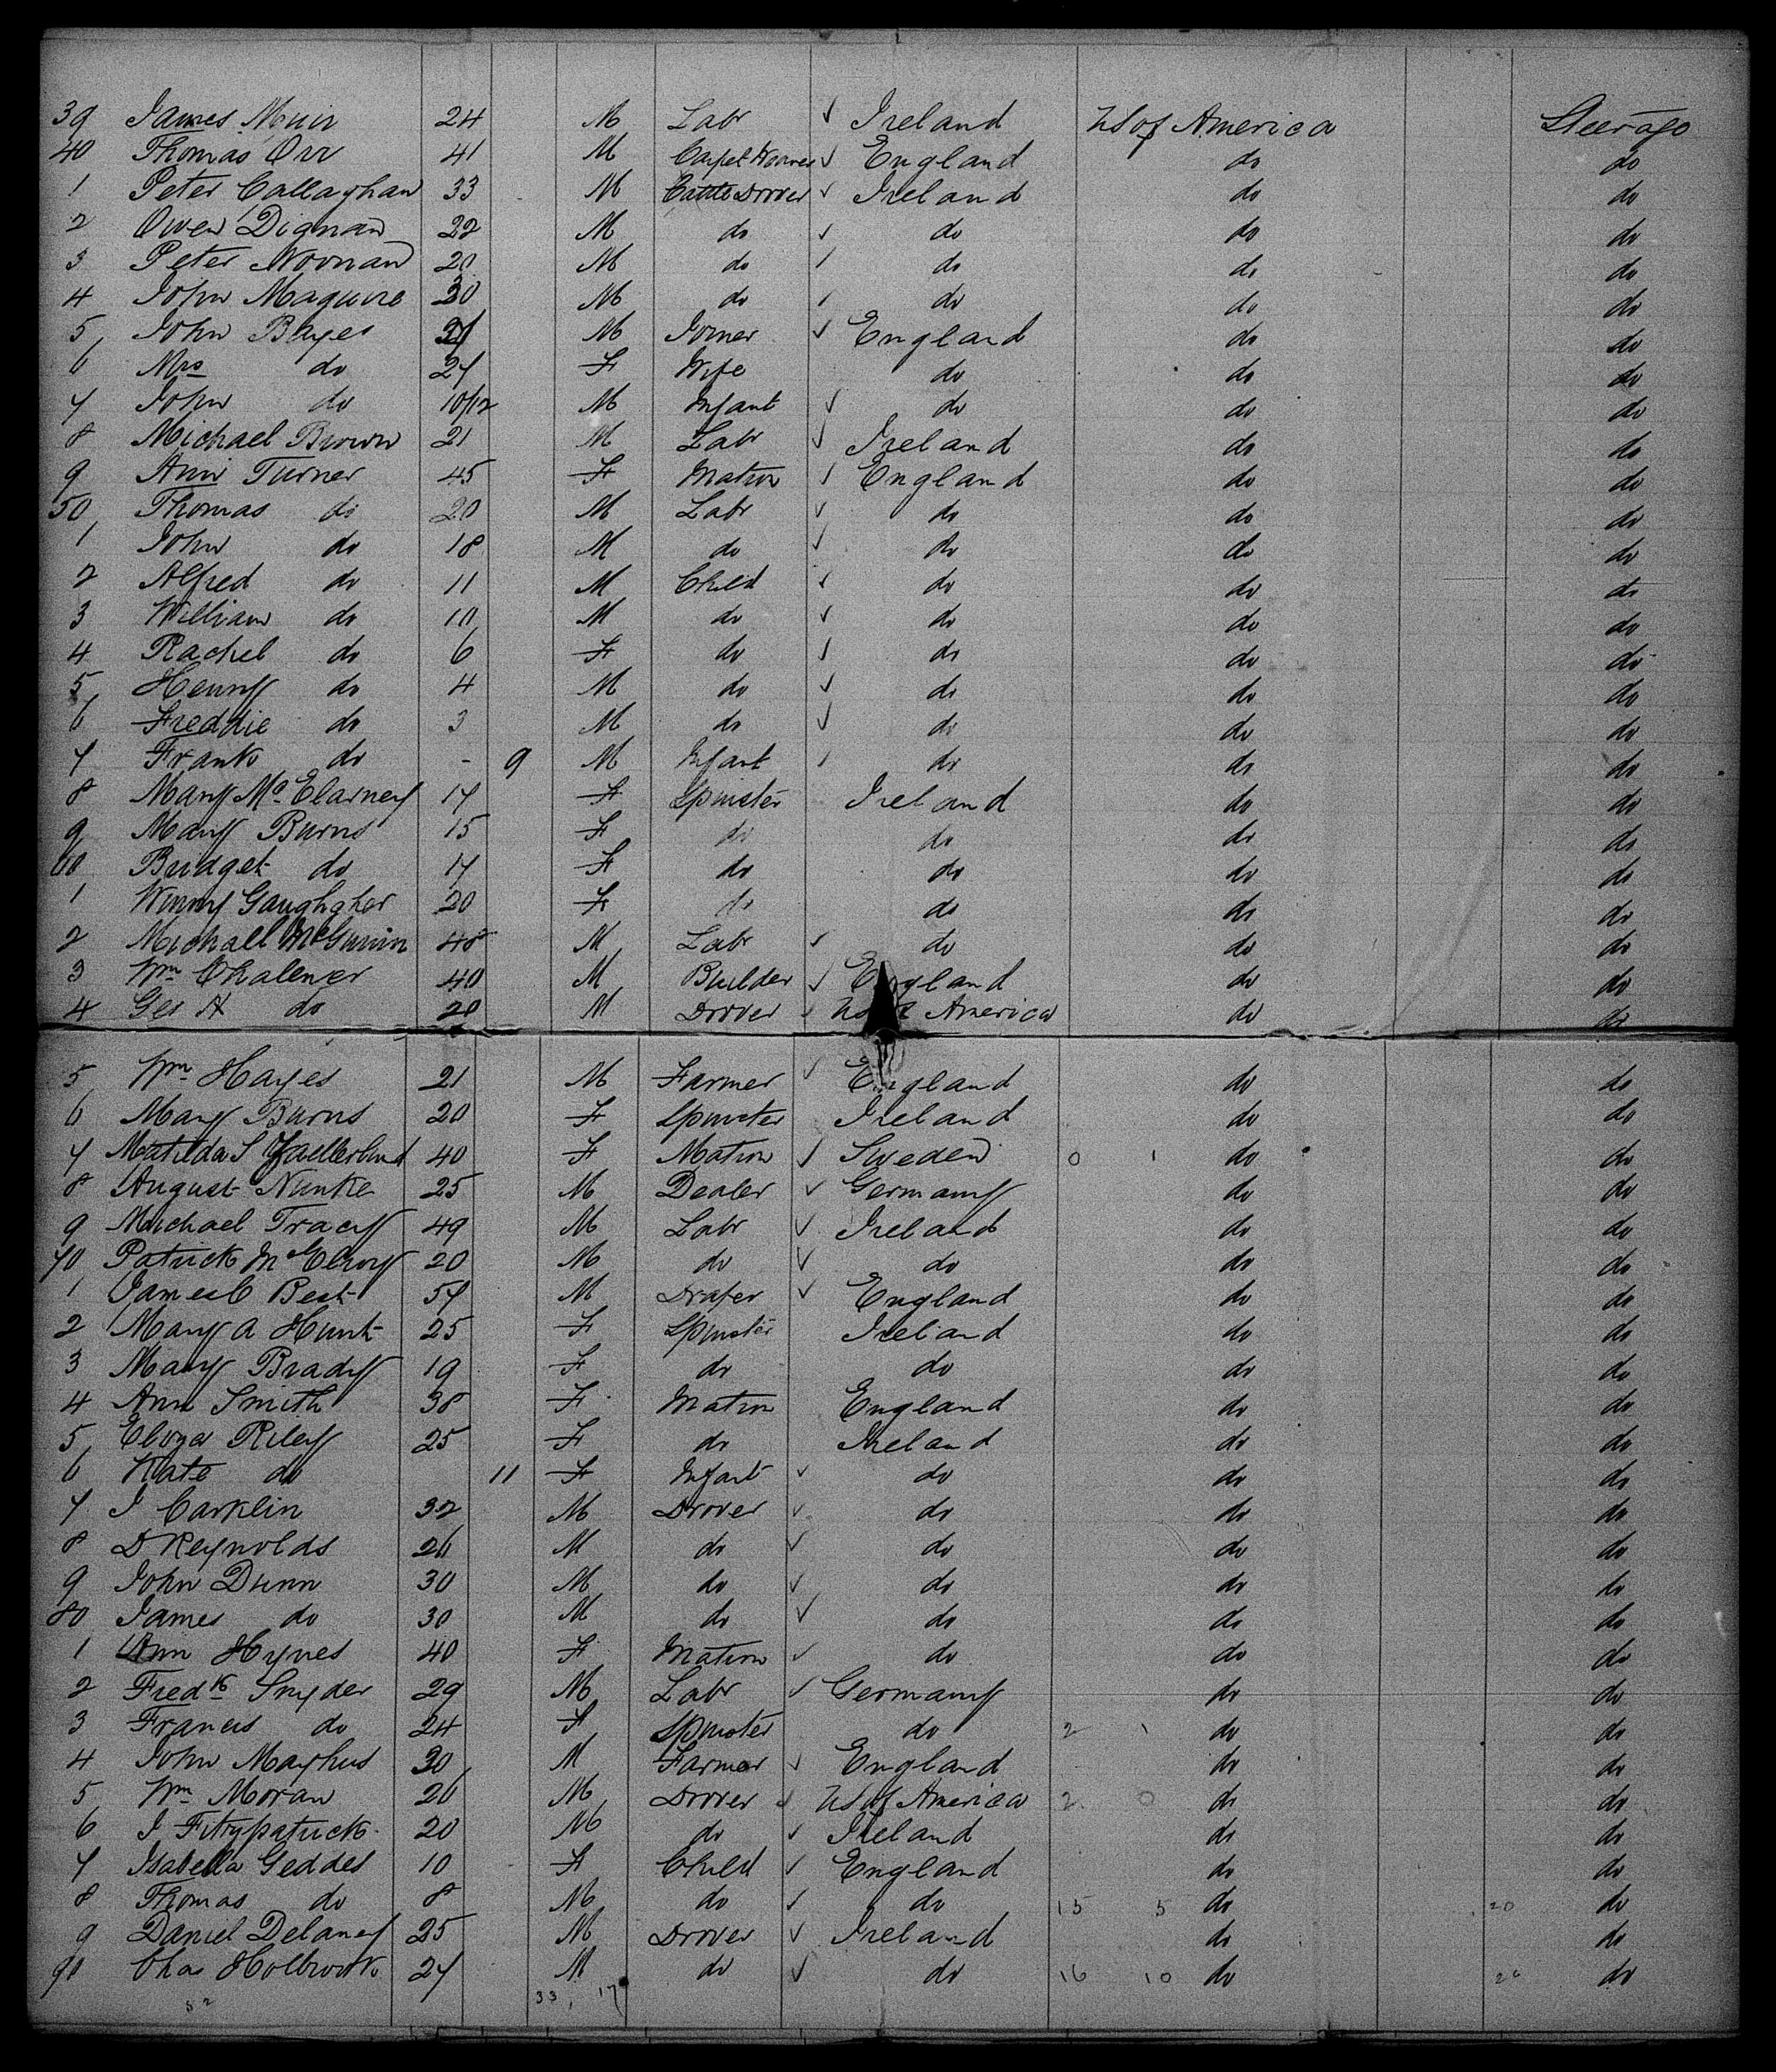 39 James Muir 24 M Labr ✓ Ireland US of America Steerage
40 Thomas Orr 41 M Carpet Weaver ✓ England do do
1 Peter Callaghan 33 M Cattle Drover ✓ Ireland do do
2 Owen Dignan 22 M do ✓ do do do
3 Peter Noonan 20 M do ✓ do do do
4 John Maguire 30 M do ✓ do do do
5 John Bayes M Joiner ✓ England do do
6 Mrs do 27 F Wife do do do
7 John do 10/12 M Infant ✓ do do do
8 Michael Brown 21 M Labr ✓ Ireland do do
9 Ann Turner 45 F Matron ✓ England do do
50 Thomas do 20 M Labr ✓ do do do
1 John do 18 M do ✓ do do do
2 Alfred do 11 M Child ✓ do do do
3 William do 10 M do ✓ do do do
4 Rachel do 6 F do ✓ do do do
5 Henry do 4 M do ✓ do do do
6 Freddie do 3 M do ✓ do do do
7 Frank do - 9 M Infant ✓ do do do
8 Mary McElarney 17 F Spinster Ireland do do
9 Mary Burns 15 F do do do do
60 Bridget do 17 F do do do do
1 Winny Gaughgher 20 F do do do do
2 Michall McGuinn 48 M Labr ✓ do do do
3 Wm Chalener 40 M Builder ✓ England do do
4 Geo H do 20 M Drover ✓ US of America do do
5 Wm Hayes 21 M Farmer ✓ England do do
6 Mary Burns 20 F Spinster Ireland do do
7 Matilda S 40 F Matron ✓ Sweden 0 1 do do
8 August Nunke 25 M Dealer ✓ Germany do do
9 Michael Tracy 49 M Labr ✓ Ireland do do
70 Patrick McElroy 20 M do ✓ do do do
1 James C Best 57 M Draper ✓ England do do
2 Mary A Hunt 25 F Spinster Ireland do do
3 Mary Brady 19 F do do do do
4 Ann Smith 38 F Matron England do do
5 Eliza Riley 25 F do Ireland do do
6 Kate do 11 F Infant ✓ do do do
7 J Carklin 32 M Drover ✓ do do do
8 D Reynolds 26 M do ✓ do do do
9 John Dunn 30 M do ✓ do do do
80 James do 30 M do ✓ do do do
1 Ann Hynes 40 F Matron ✓ do do do
2 Fredk Snyder 29 M Labr ✓ Germany do do
3 Francis do 24 F Spinster do 2 1 do do
4 John Mayhus 30 M Farmer ✓ England do do
5 Wm Moran 26 M Drover ✓ US of America 2 0 do do
6 J Fitzpatrick 20 M do ✓ Ireland do do
7 Isabella Geddes 10 F Child ✓ England do do
8 Thomas do 8 M do ✓ do 15 5 do 20 do
9 Daniel Delaney 25 M Drover ✓ Ireland do do
90 Chas Holbrook 27 M do ✓ do 16 10 do 26 do
52 33, 17